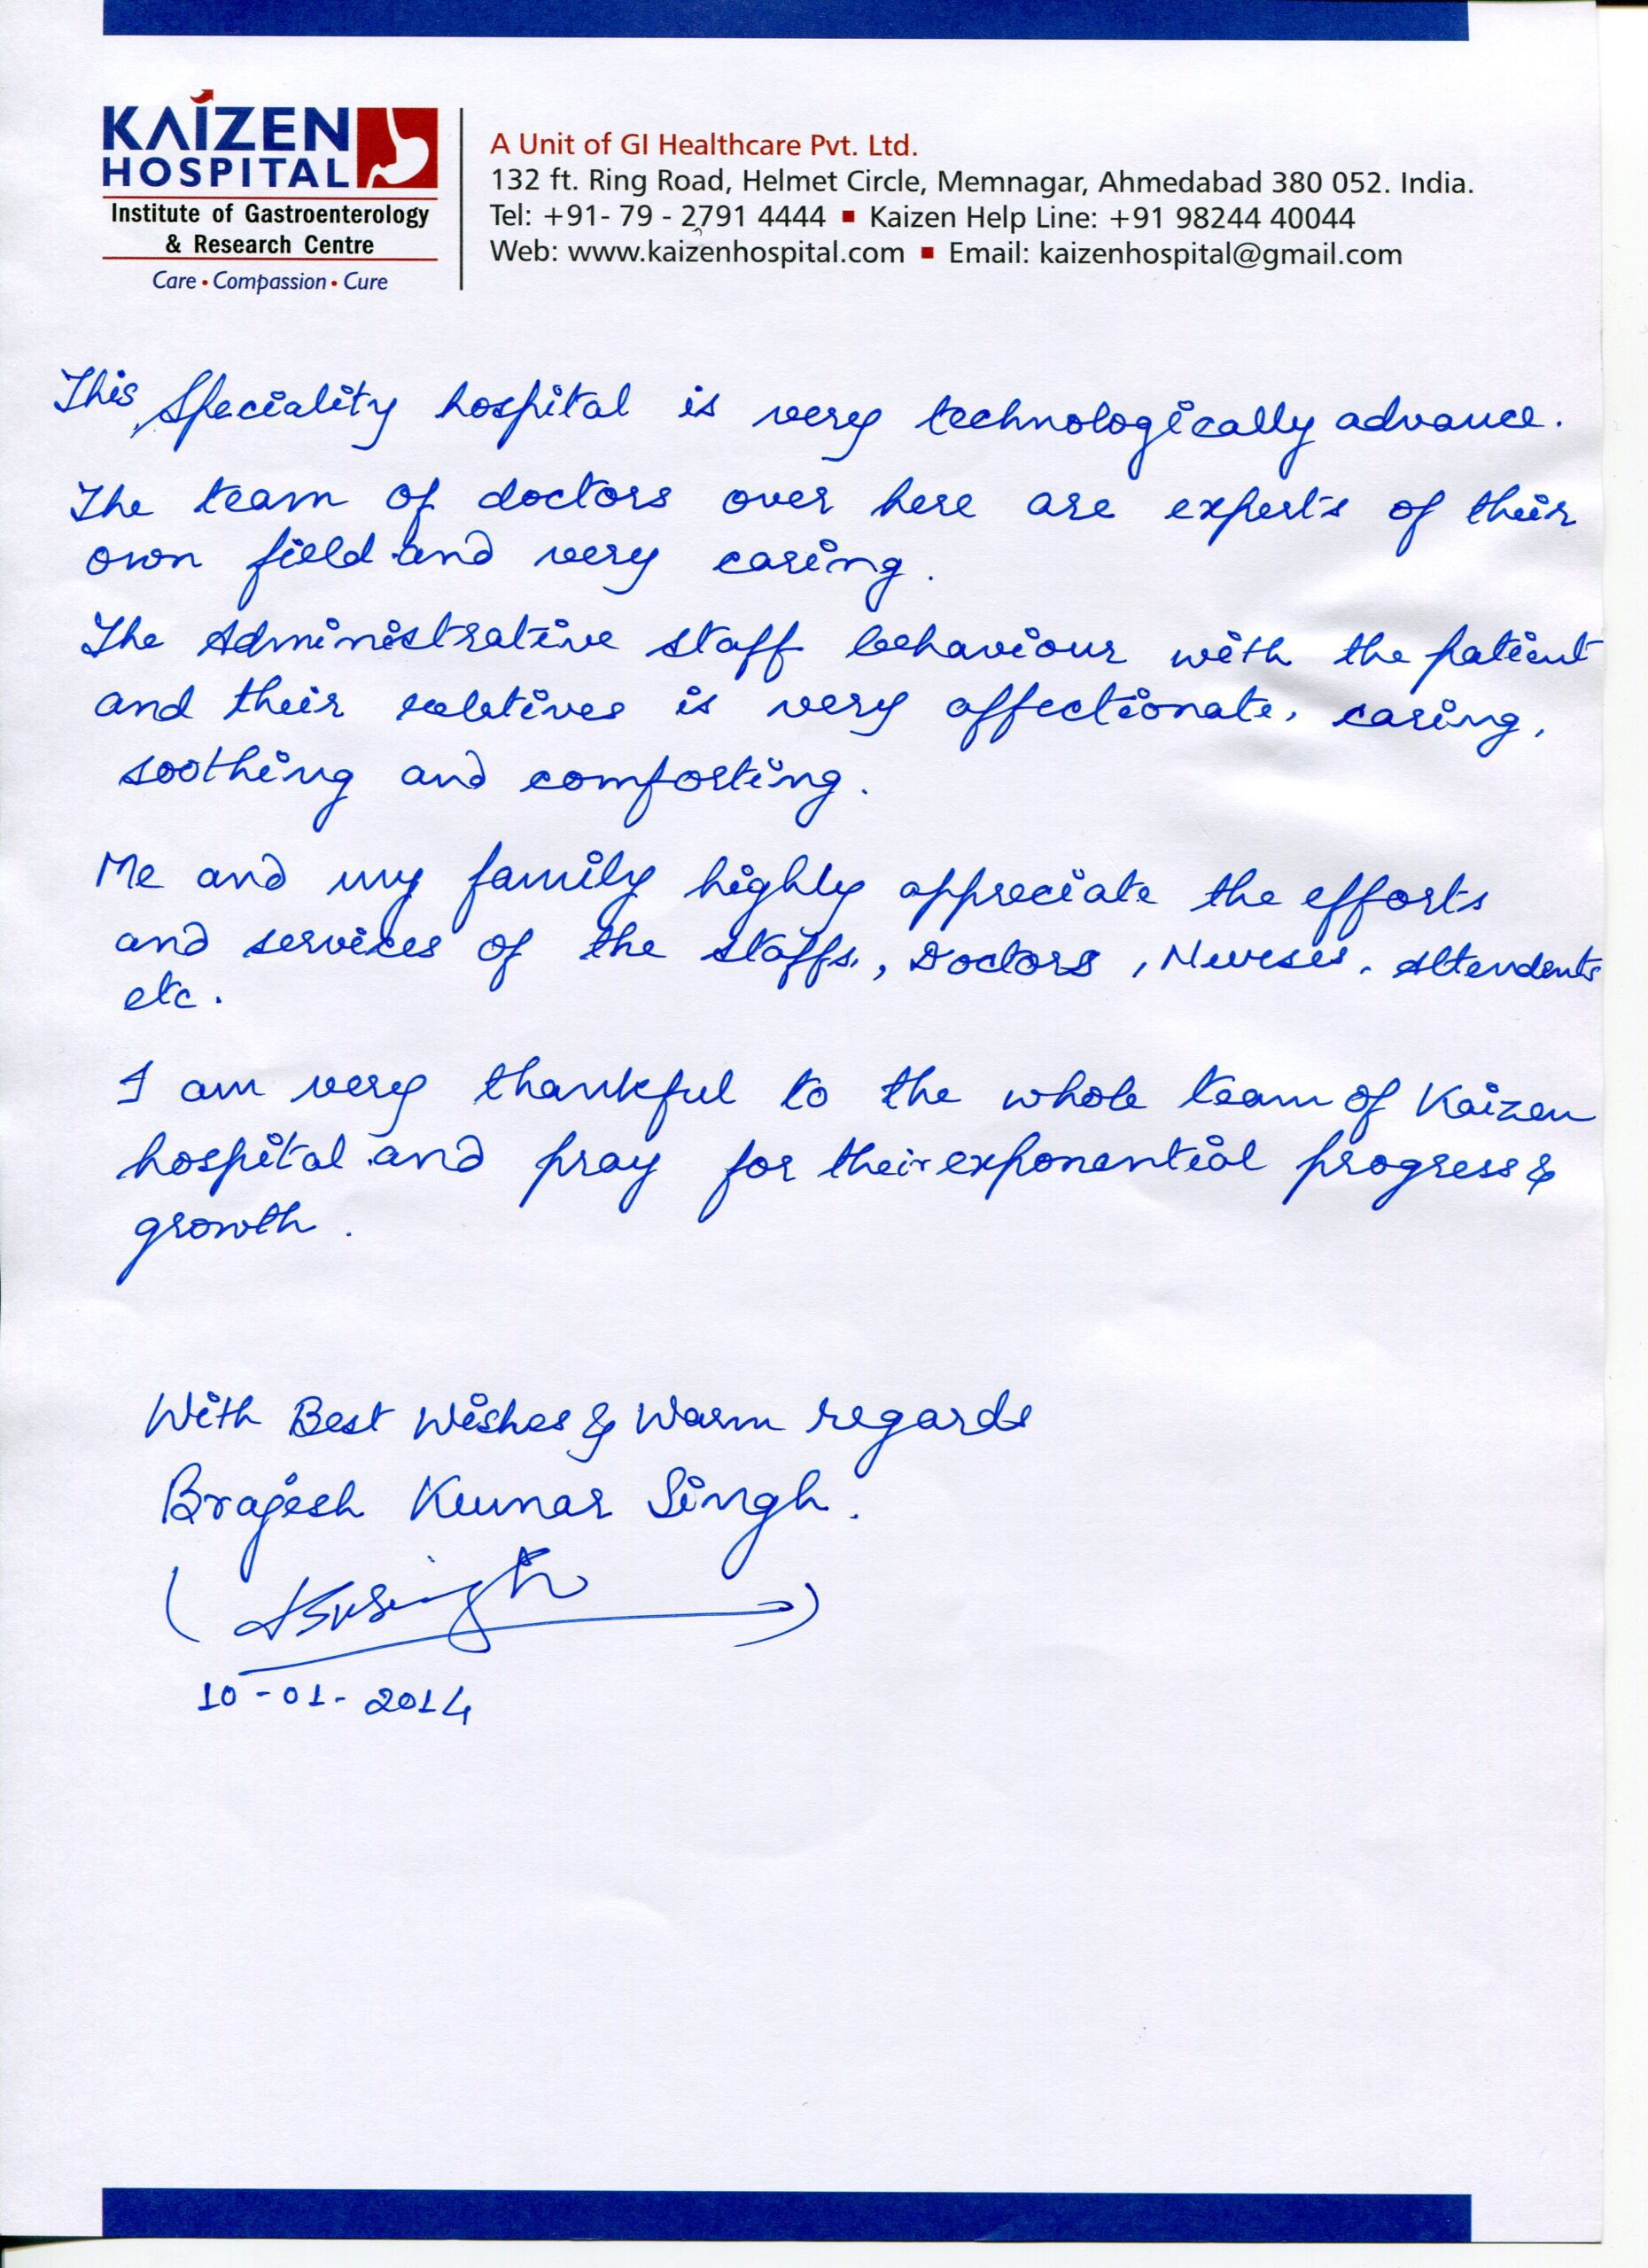 KAIZEN
HOSPITAL
Institute of Gastroenterology
& Research Centre
Care • Compassion • Cure
A Unit of GI Healthcare Pvt. Ltd.
132 ft. Ring Road, Helmet Circle, Memnagar, Ahmedabad 380 052. India.
Tel: +91- 79 - 2791 4444 ▪ Kaizen Help Line: +91 98244 40044
Web: www.kaizenhospital.com ▪ Email: kaizenhospital@gmail.com
This Speciality hospital is very technologically advance.
The team of doctors over here are experts of their
own field and very caring.
The Administrative staff behaviour with the patient
and their relatives is very affectionate, caring,
soothing and comforting.
Me and my family highly appreciate the efforts
and services of the staffs, Doctors, Nurses, Attendents
etc.
I am very thankful to the whole team of Kaizen
hospital and pray for their exponential progress &
growth.
With Best Wishes & Warm regards
Brajesh Kumar Singh.
10-01-2014